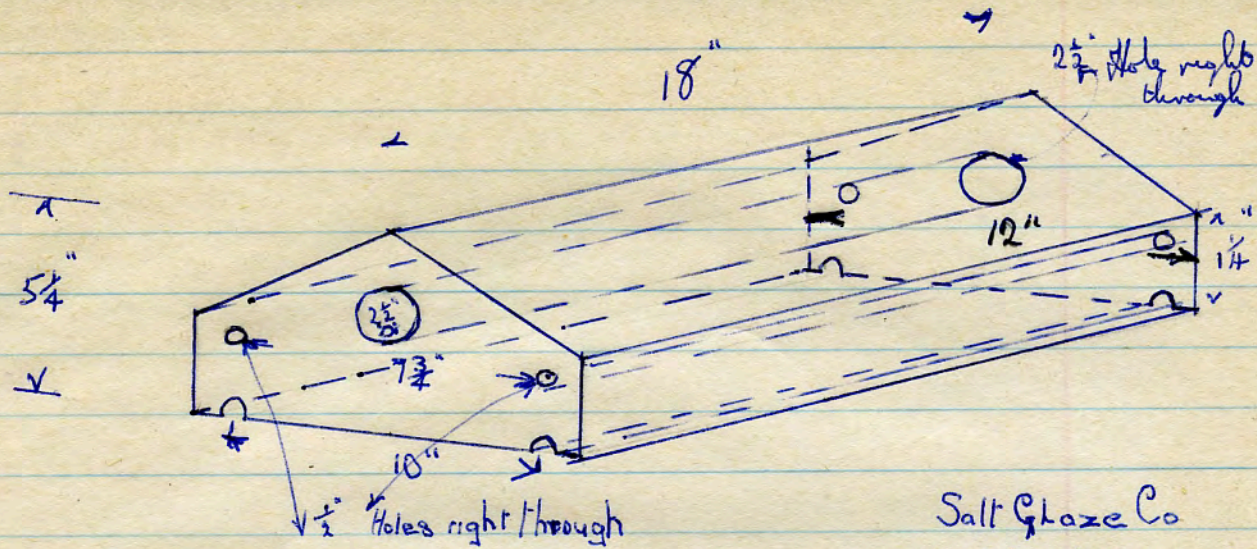 18"
2½" Hole right
through
5¼"
12"
1¼"
2½"
7¾"
10"
½" Holes right through
Salt Glaze Co